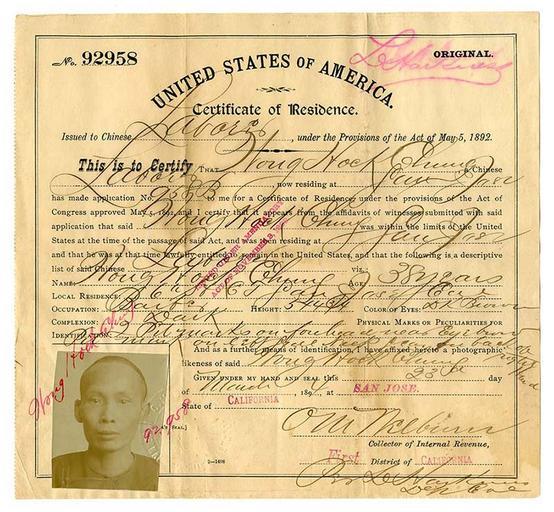 No. 92958
ORIGINAL.
UNITED STATES OF AMERICA.
Certificate of Residence.
Issued to Chinese Laborer, under the Provisions of the Act of May 5, 1892.
This is to Certify THAT Wong Hock Chung a Chinese
Laborer now residing at San Jose
has made application No. to me for a Certificate of Residence, under the provisions of the Act of
Congress approved May 5, 1892, and I certify that it appears from the affidavits of witnesses submitted with said
application that said Wong Hock Chung was within the limits of the United
States at the time of the passage of said Act, and was then residing at San Jose
and that he was at that time lawfully entitled to remain in the United States, and that the following is a descriptive
list of said Chinese viz.:
NAME: Wong Hock Chung AGE: 38 years
LOCAL RESIDENCE: San Jose
OCCUPATION: HEIGHT: COLOR OF EYES: Brown
COMPLEXION: Dark PHYSICAL MARKS OR PECULIARITIES FOR
IDENTIFICATION: marks on forehead
And as a further means of identification, I have affixed hereto a photographic
likeness of said Wong Hock Chung
GIVEN UNDER MY HAND AND SEAL this 23d day
of March 189, at SAN JOSE.
State of CALIFORNIA
Wong Hock Chung
92958
[SEAL.]
Collector of Internal Revenue,
First District of CALIFORNIA
2—1408